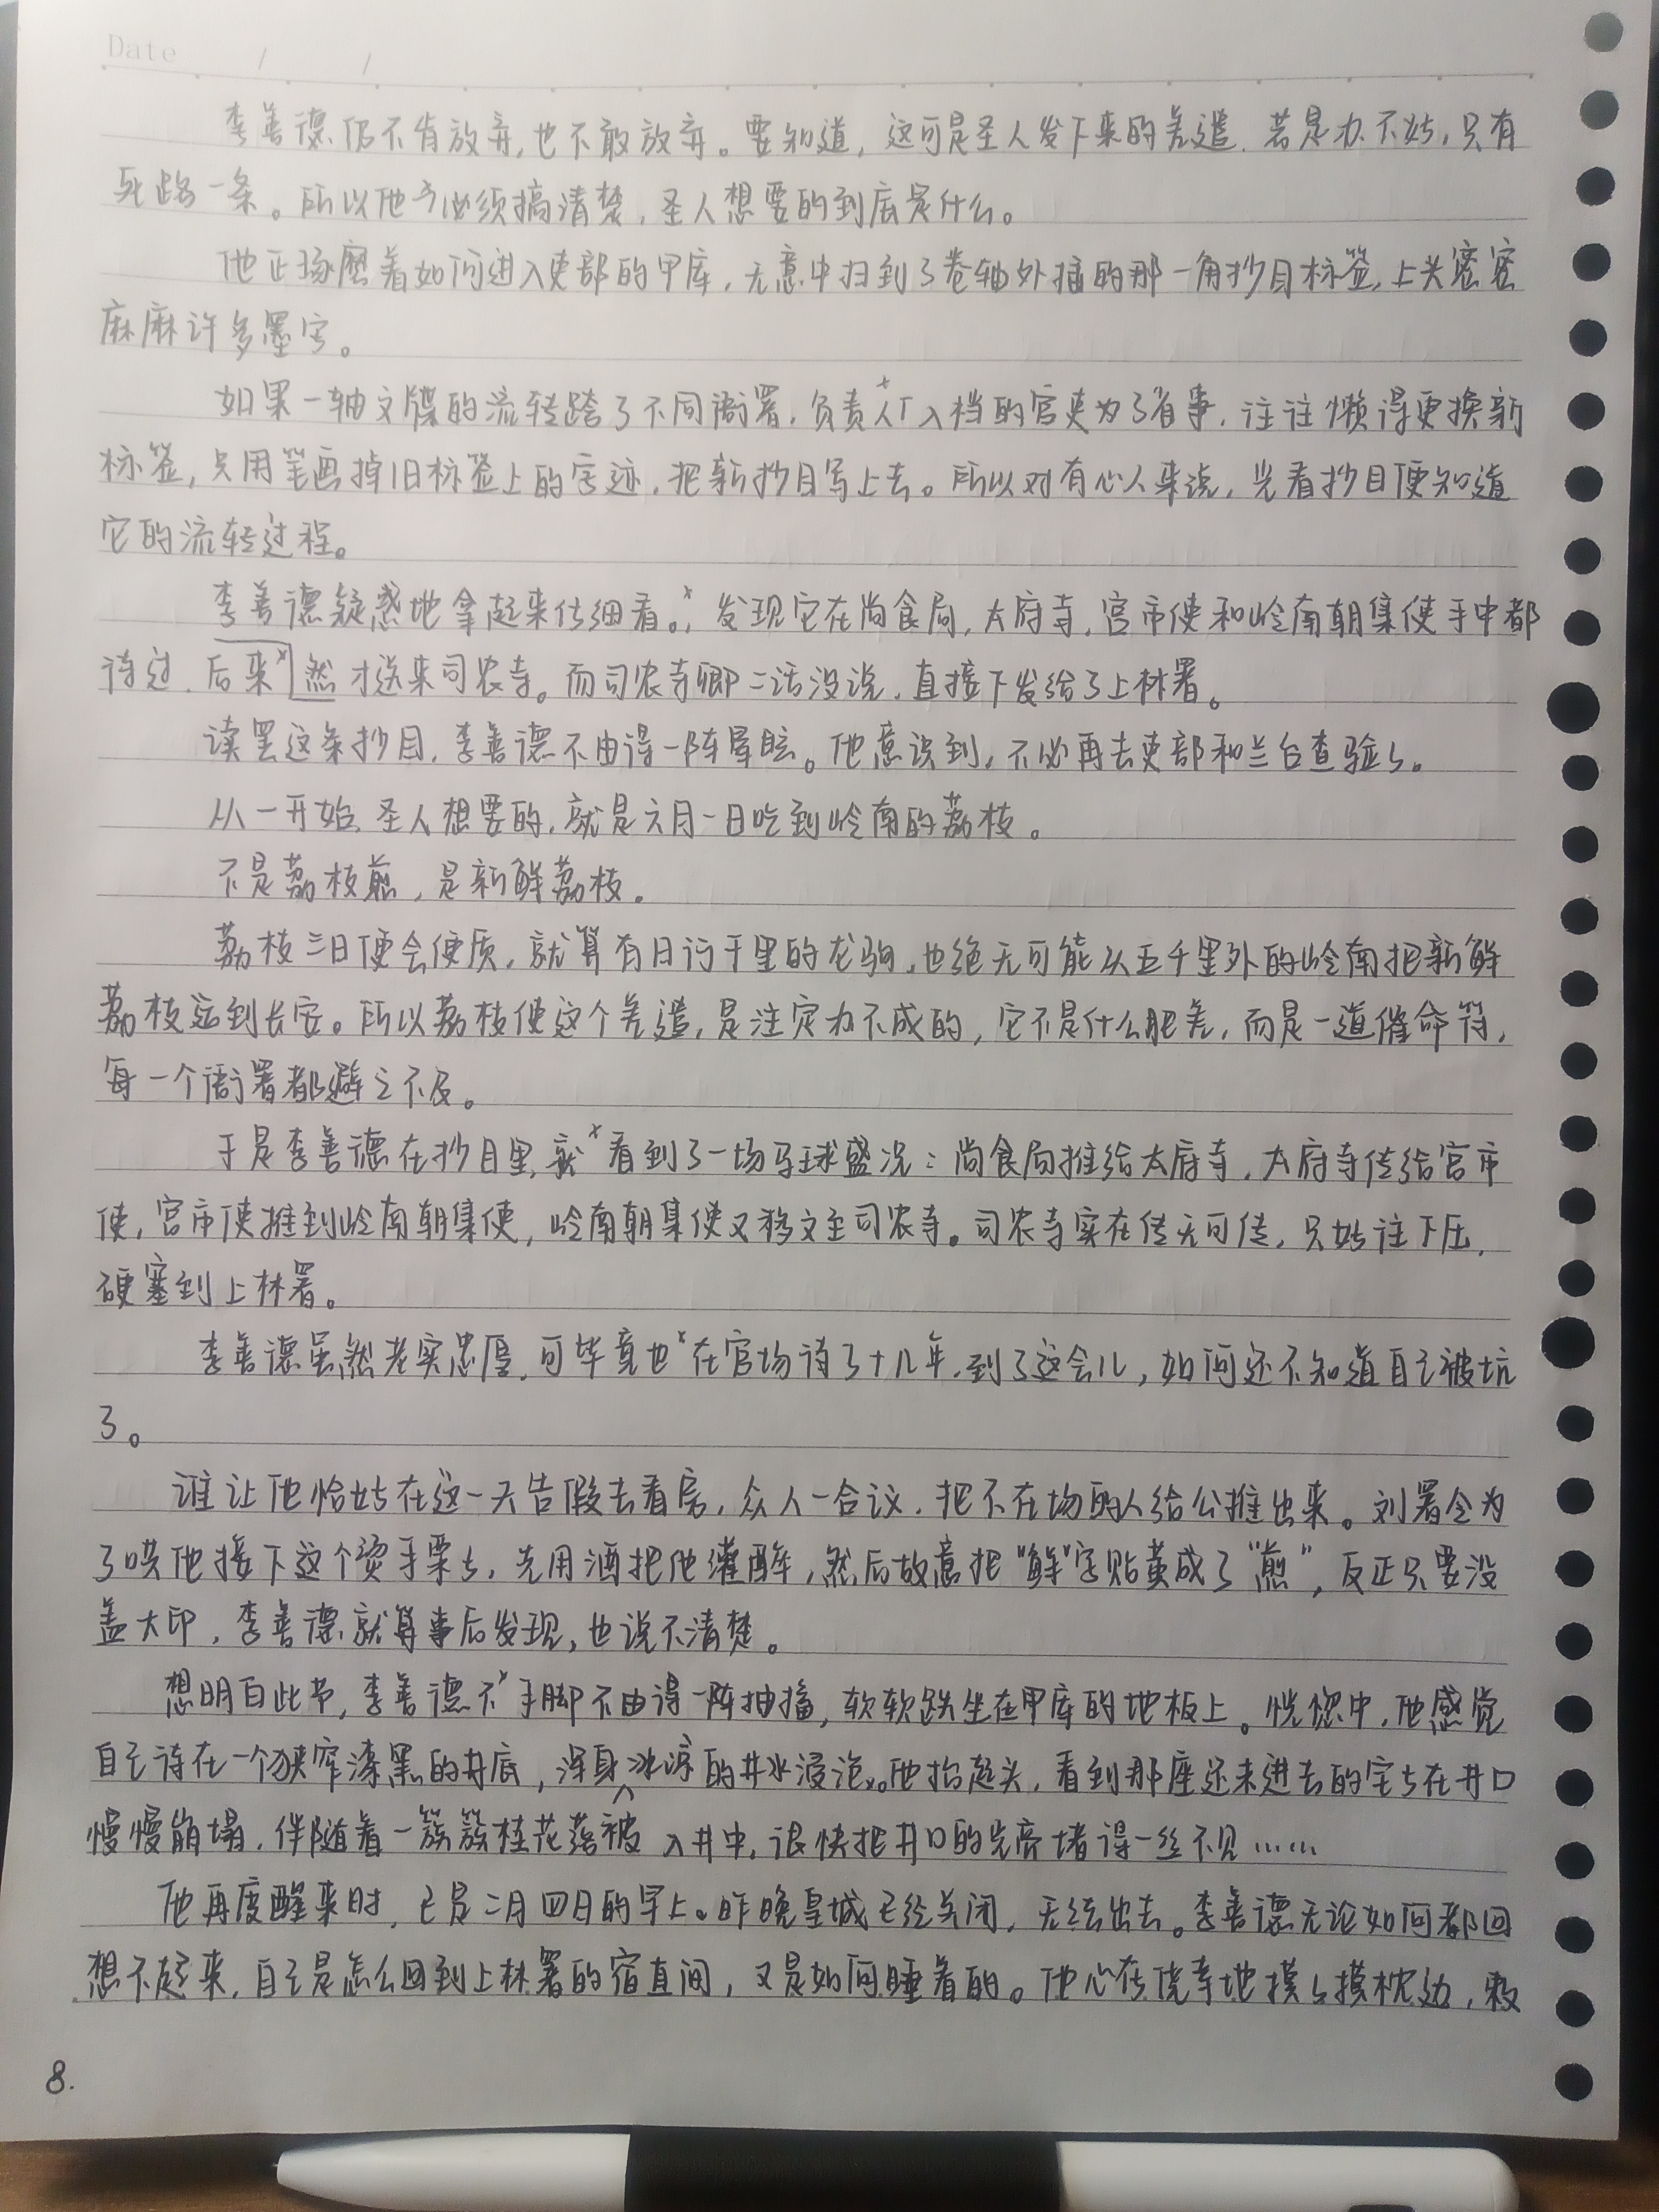 Date / /
李善德仍不肯放弃,也不敢放弃。要知道,这可是圣人发下来的差遣,若是办不好,只有
死路一条。所以他必须搞清楚,圣人想要的到底是什么。
他正琢磨着如何进入吏部的甲库,无意中扫到了卷轴外插的那一角抄目标签,上头密密
麻麻许多墨字。
如果一轴文牒的流转跨了不同衙署,负责入档的官吏为了省事,往往懒得更换新
标签,只用笔画掉旧标签上的字迹,把新抄目写上去。所以对有心人来说,光看抄目便知道
它的流转过程。
李善德疑惑地拿起来仔细看。,发现它在尚食局,太府寺,宫市使和岭南朝集使手中都
待过,后来然才送来司农寺。而司农寺卿二话没说,直接下发给了上林署。
读罢这条抄目,李善德不由得一阵晕眩。他意识到,不必再去吏部和兰台查验了。
从一开始,圣人想要的,就是六月一日吃到岭南的荔枝。
不是荔枝煎,是新鲜荔枝。
荔枝三日便会变质,就算有日行千里的龙驹,也绝无可能从五千里外的岭南把新鲜
荔枝运到长安。所以荔枝使这个差遣,是注定办不成的,它不是什么肥差,而是一道催命符,
每一个衙署都避之不及。
于是李善德在抄目里,就看到了一场马球盛况:尚食局推给太府寺,太府寺传给宫市
使,宫市使推到岭南朝集使,岭南朝集使又移文至司农寺。司农寺实在传无可传,只好往下压,
硬塞到上林署。
李善德虽然老实忠厚,可毕竟也在官场待了十几年,到了这会儿,如何还不知道自己被坑
了。
谁让他恰好在这一天告假去看房,众人一合议,把不在场的人给公推出来。刘署令为
了哄他接下这个烫手栗子,先用酒把他灌醉,然后故意把“鲜”字贴黄成了“煎”,反正只要没
盖大印,李善德就算事后发现,也说不清楚。
想明白此节,李善德不手脚不由得一阵抽搐,软软跌坐在甲库的地板上。恍惚中,他感觉
自己待在一个狭窄漆黑的井底,浑身被冰凉的井水浸泡。他抬起头,看到那座还未进去的宅子在井口
慢慢崩塌,伴随着一簇簇桂花落入井中,很快把井口的光亮堵得一丝不见……
他再度醒来时,已是二月四日的早上。昨晚皇城已经关闭,无法出去。李善德无论如何都回
想不起来,自己是怎么回到上林署的宿直间,又是如何睡着的。他心存侥幸地摸了摸枕边,敕
8.